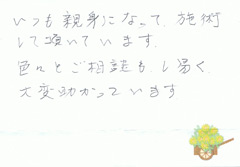 いつも親身になって、施術
して頂いています。
色々とご相談もし易く、
大変助かっています